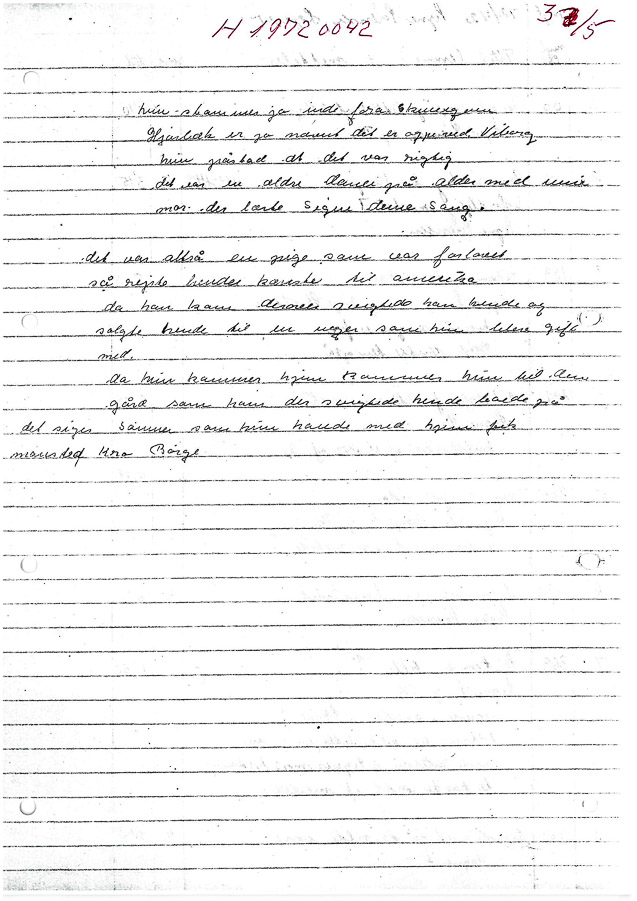 H 1972 0042
3/5
hun stammer jo inde fra Skivregnen
Hjarbæk er jo nævnt det er oppe ved Viborg
hun påstod at det var rigtig
det var en ældre Dame på alder med min
mor. der lærte Signe denne Sang.
det var altså en pige som var forlovet
så rejste hendes kæreste til amerika
da hun kom derover svigtede han hende og
solgte hende til en neger som hun blev gift ( )
med.
da hun kommer hjem kommer hun til den
gård som ham der svigtede hende boede på
det siges Sønner som hun havde med hjem fik
mønsted Kro Børge